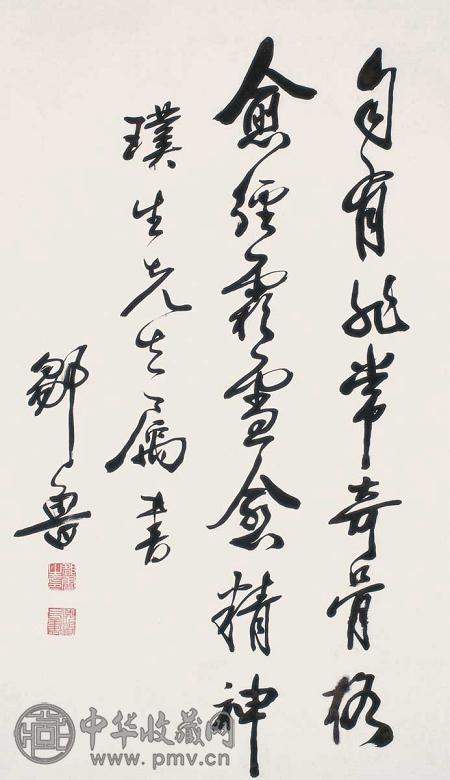 自有非常奇骨格
愈经霜雪愈精神
璞生先生属书
邹鲁
中华收藏网
www.pmv.cn